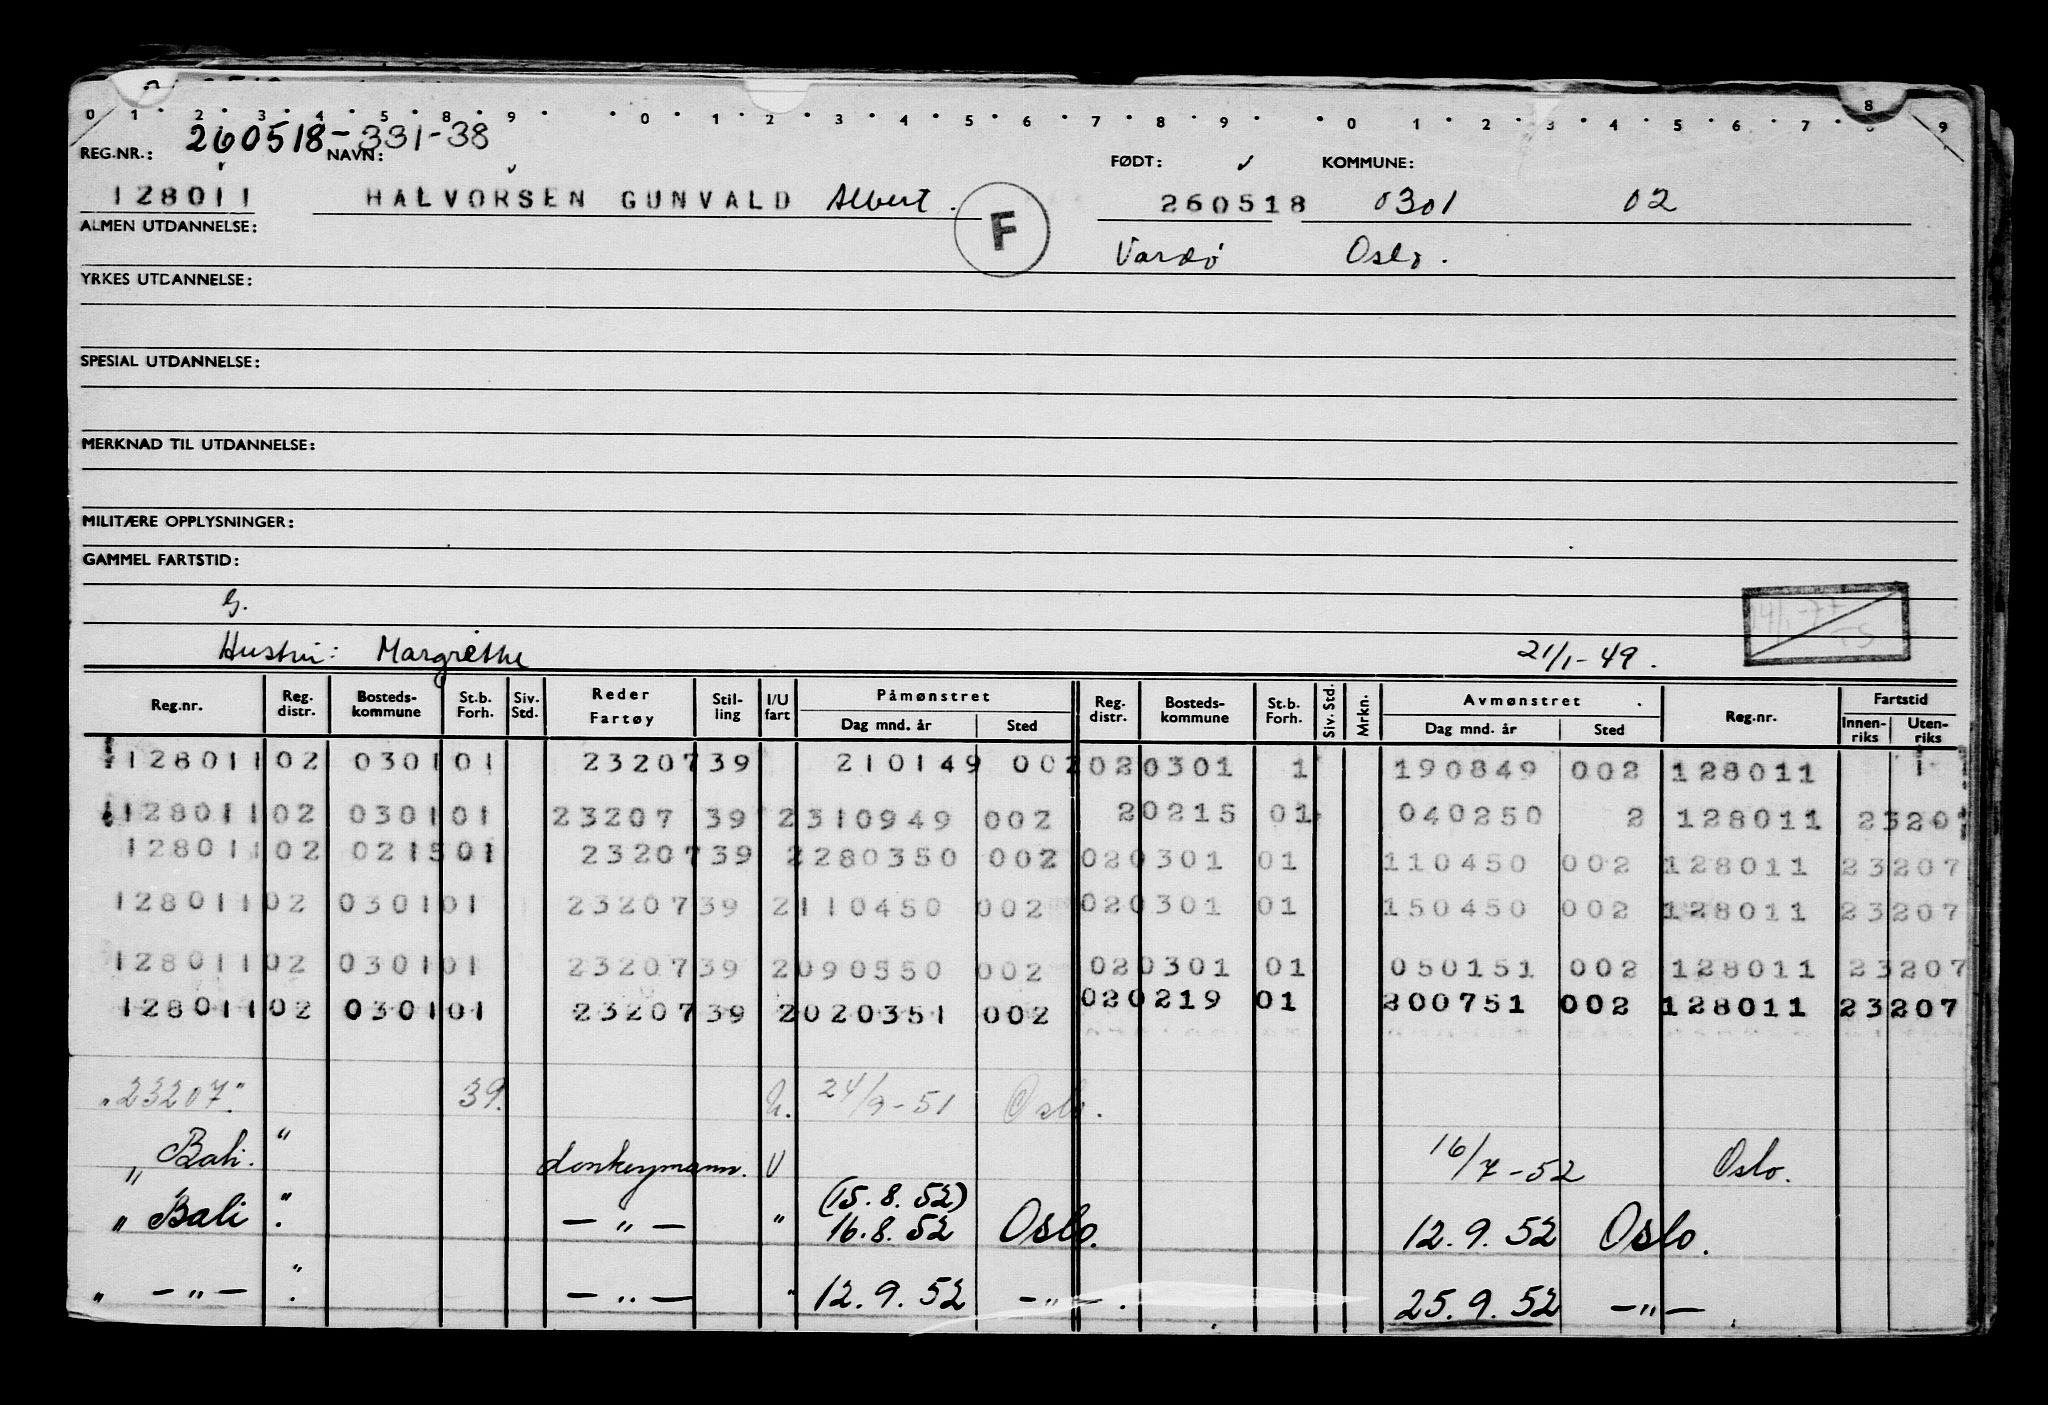 0 1 2 3 4 5 8 9 0 1 2 3 4 5 6 7 8 9 0 1 2 3 4 5 6 7 8 9
260518-331-38
REG.NR.: NAVN: FØDT: KOMMUNE:
128011 HALVORSEN GUNVALD Albert. 260518 0301 02
F
ALMEN UTDANNELSE: Vardø Oslo.
YRKES UTDANNELSE:
SPESIAL UTDANNELSE:
MERKNAD TIL UTDANNELSE:
MILITÆRE OPPLYSNINGER:
GAMMEL FARTSTID:
G.
Hustru: Margrethe 21/1-49.
Reg.nr. Reg. distr. Bosteds-kommune St.b. Forh. Siv. Std. Reder Fartøy Stil-ling I/U fart Påmønstret Dag mnd. år Sted Reg. distr. Bosteds-kommune St.b. Forh. Siv. Std. Mrkn. Avmønstret Dag mnd. år Sted Reg.nr. Fartstid Innen-riks Uten-riks
128011 02 0301 01 23207 39 210149 002 02 0301 1 190849 002 128011 1
128011 02 0301 01 23207 39 2 310949 002 20215 01 040250 2 128011 2320
128011 02 0215 01 23207 39 2 280350 002 02 0301 01 110450 002 128011 23207
128011 02 0301 01 23207 39 2 110450 002 02 0301 01 150450 002 128011 23207
128011 02 0301 01 23207 39 2 090550 002 02 0301 01 050151 002 128011 23207
128011 02 0301 01 23207 39 2 020351 002 02 0219 01 200751 002 128011 23207
"23207" 39. U. 24/9-51 Oslo.
" Bali." donkeymann. U 16/7-52 Oslo.
(15.8.52)
" Bali". — " — " 16.8.52 Oslo. 12.9.52 Oslo.
" — " — ". — " — " 12.9.52 — " —. 25.9.52 — " —